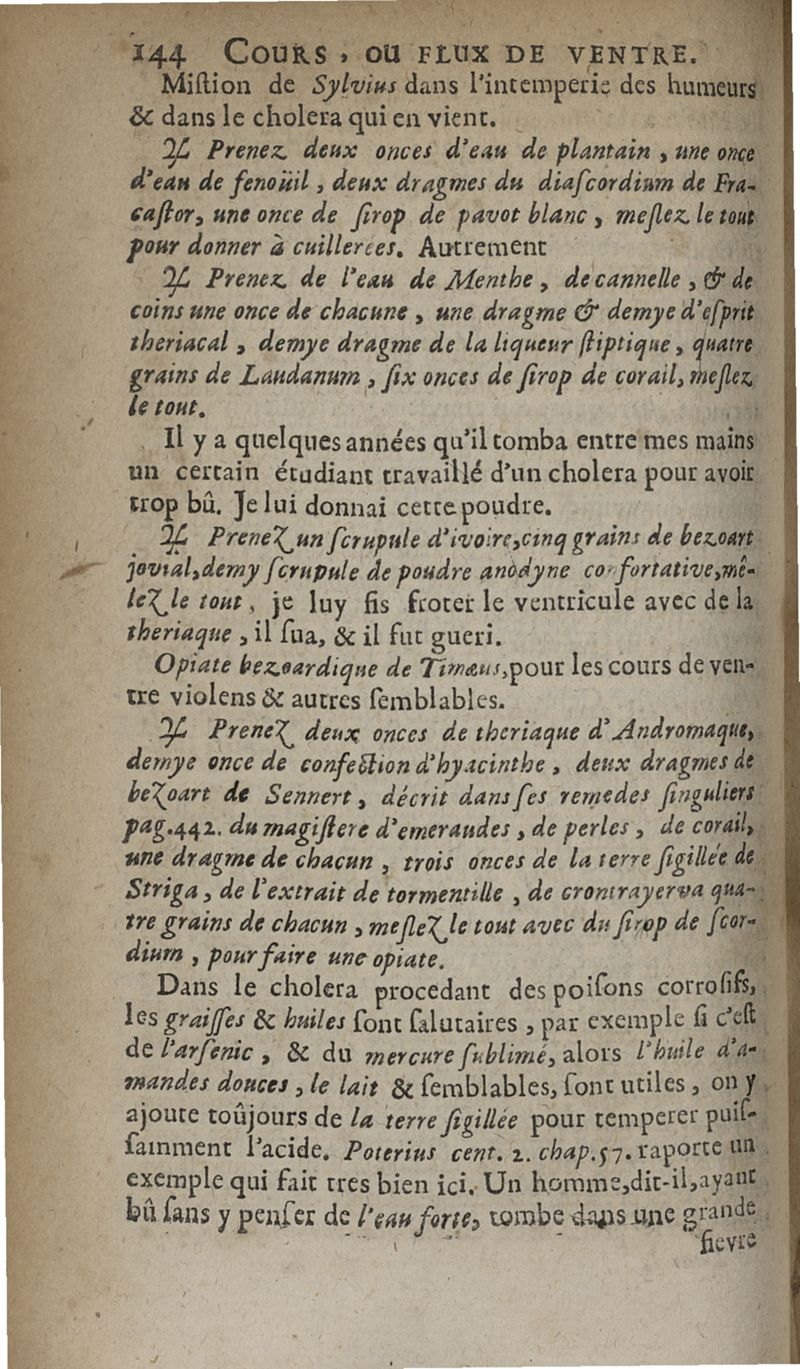 144 COURS, OU FLUX DE VENTRE.
Miſtion de Sylvius dans l'intemperie des humeurs
& dans le cholera qui en vient.
℞ Prenez deux onces d'eau de plantain, une once
d'eau de fenoüil, deux dragmes du diaſcordium de Fra-
caſtor, une once de ſirop de pavot blanc, meſlez le tout
pour donner à cuillerées. Autrement
℞ Prenez de l'eau de Menthe, de cannelle, & de
coins une once de chacune, une dragme & demye d'eſprit
theriacal, demye dragme de la liqueur ſtiptique, quatre
grains de Laudanum, ſix onces de ſirop de corail, meſlez
le tout.
Il y a quelques années qu'il tomba entre mes mains
un certain étudiant travaillé d'un cholera pour avoir
trop bû. Je lui donnai cette poudre.
℞ Prenez un ſcrupule d'ivoire, cinq grains de bezoart
jovial, demy ſcrupule de poudre anodyne confortative, mê-
lez le tout, je luy fis froter le ventricule avec de la
theriaque, il ſua, & il fut gueri.
Opiate bezoardique de Timæus, pour les cours de ven-
tre violens & autres ſemblables.
℞ Prenez deux onces de theriaque d'Andromaque,
demye once de confection d'hyacinthe, deux dragmes de
bezoart de Sennert, décrit dans ſes remedes ſinguliers
pag. 442. du magiſtere d'emeraudes, de perles, de corail,
une dragme de chacun, trois onces de la terre ſigillée de
Striga, de l'extrait de tormentille, de crontrayerva qua-
tre grains de chacun, meſlez le tout avec du ſirop de ſcor-
dium, pour faire une opiate.
Dans le cholera procedant des poiſons corroſifs,
les graiſſes & huiles ſont ſalutaires, par exemple ſi c'eſt
de l'arſenic, & du mercure ſublimé, alors l'huile d'a-
mandes douces, le lait & ſemblables, ſont utiles, on y
ajoute toûjours de la terre ſigillée pour temperer puiſ-
ſamment l'acide. Poterius cent. 2. chap. 57. raporte un
exemple qui fait tres bien ici. Un homme, dit-il, ayant
bû ſans y penſer de l'eau forte, tombe dans une grande
fievre